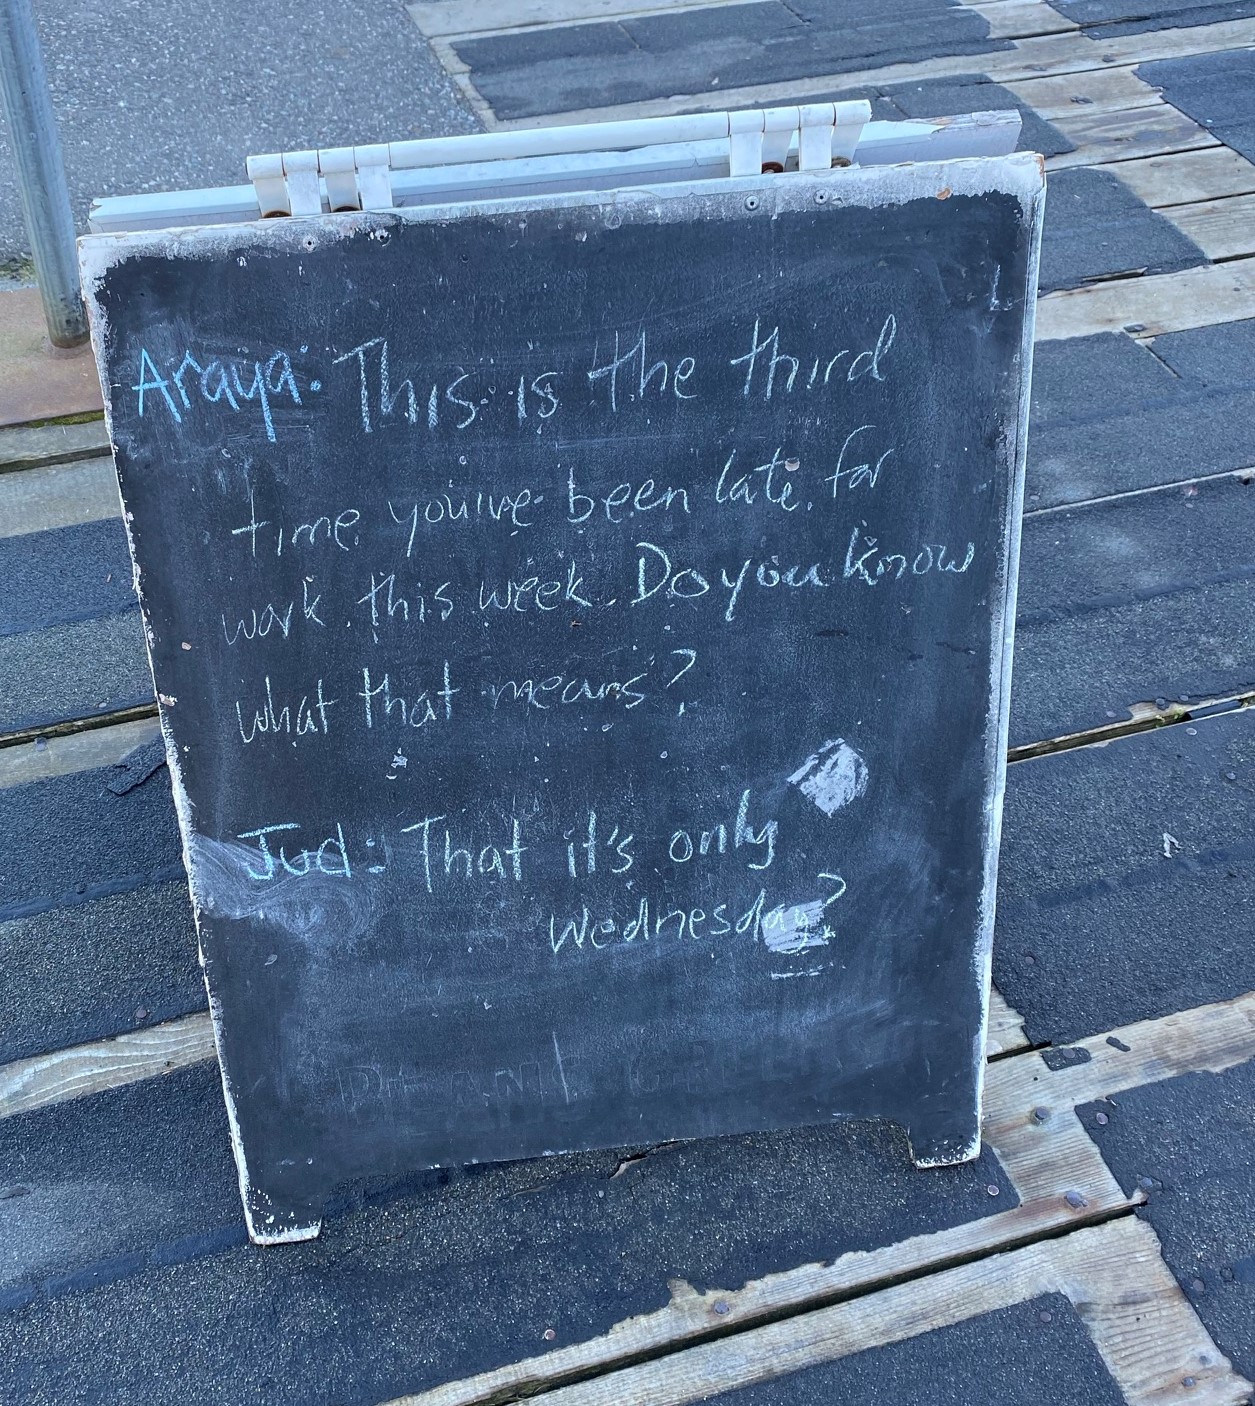 Araya: This is the third
time you've been late for
work this week. Do you know
what that means?
Jud: That it's only
Wednesday?